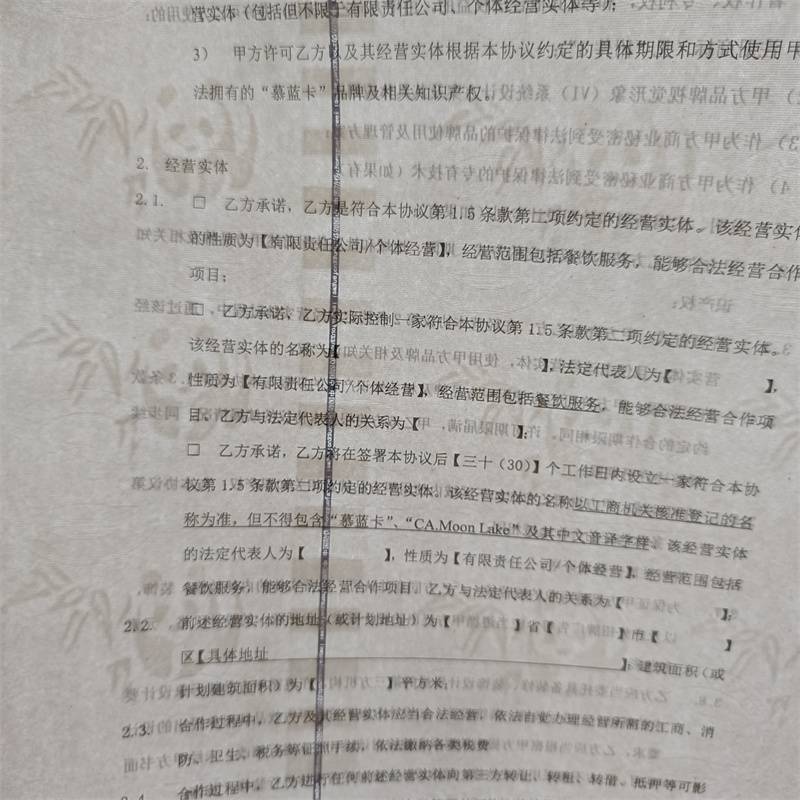 营实体（包括但不限于有限责任公司、个体经营实体等）；
3） 甲方许可乙方以及其经营实体根据本协议约定的具体期限和方式使用甲
法拥有的“慕蓝卡”品牌及相关知识产权。
2. 经营实体
2.1. □ 乙方承诺，乙方是符合本协议第1.5条款第二项约定的经营实体。该经营实体
的性质为【有限责任公司/个体经营】，经营范围包括餐饮服务，能够合法经营合作
项目；
□ 乙方承诺，乙方实际控制一家符合本协议第1.5条款第二项约定的经营实体。
该经营实体的名称为【 】，法定代表人为【 】，
性质为【有限责任公司/个体经营】，经营范围包括餐饮服务，能够合法经营合作项
目，乙方与法定代表人的关系为【 】；
□ 乙方承诺，乙方将在签署本协议后【三十（30）】个工作日内设立一家符合本协
议第1.5条款第二项约定的经营实体。该经营实体的名称以工商机关核准登记的名
称为准，但不得包含“慕蓝卡”、“CA.Moon Lake”及其中文音译字样，该经营实体
的法定代表人为【 】，性质为【有限责任公司/个体经营】，经营范围包括
餐饮服务，能够合法经营合作项目，乙方与法定代表人的关系为【 】；
2.2. 前述经营实体的地址（或计划地址）为【 】省【 】市【 】
区【具体地址 】；建筑面积（或
计划建筑面积）为【 】平方米；
2.3. 合作过程中，乙方及其经营实体应当合法经营，依法自觉办理经营所需的工商、消
防、卫生、税务等证照手续，依法缴纳各类税费
2.4. 合作过程中，乙方进行任何前述经营实体向第三方转让、转租、转借、抵押等可影